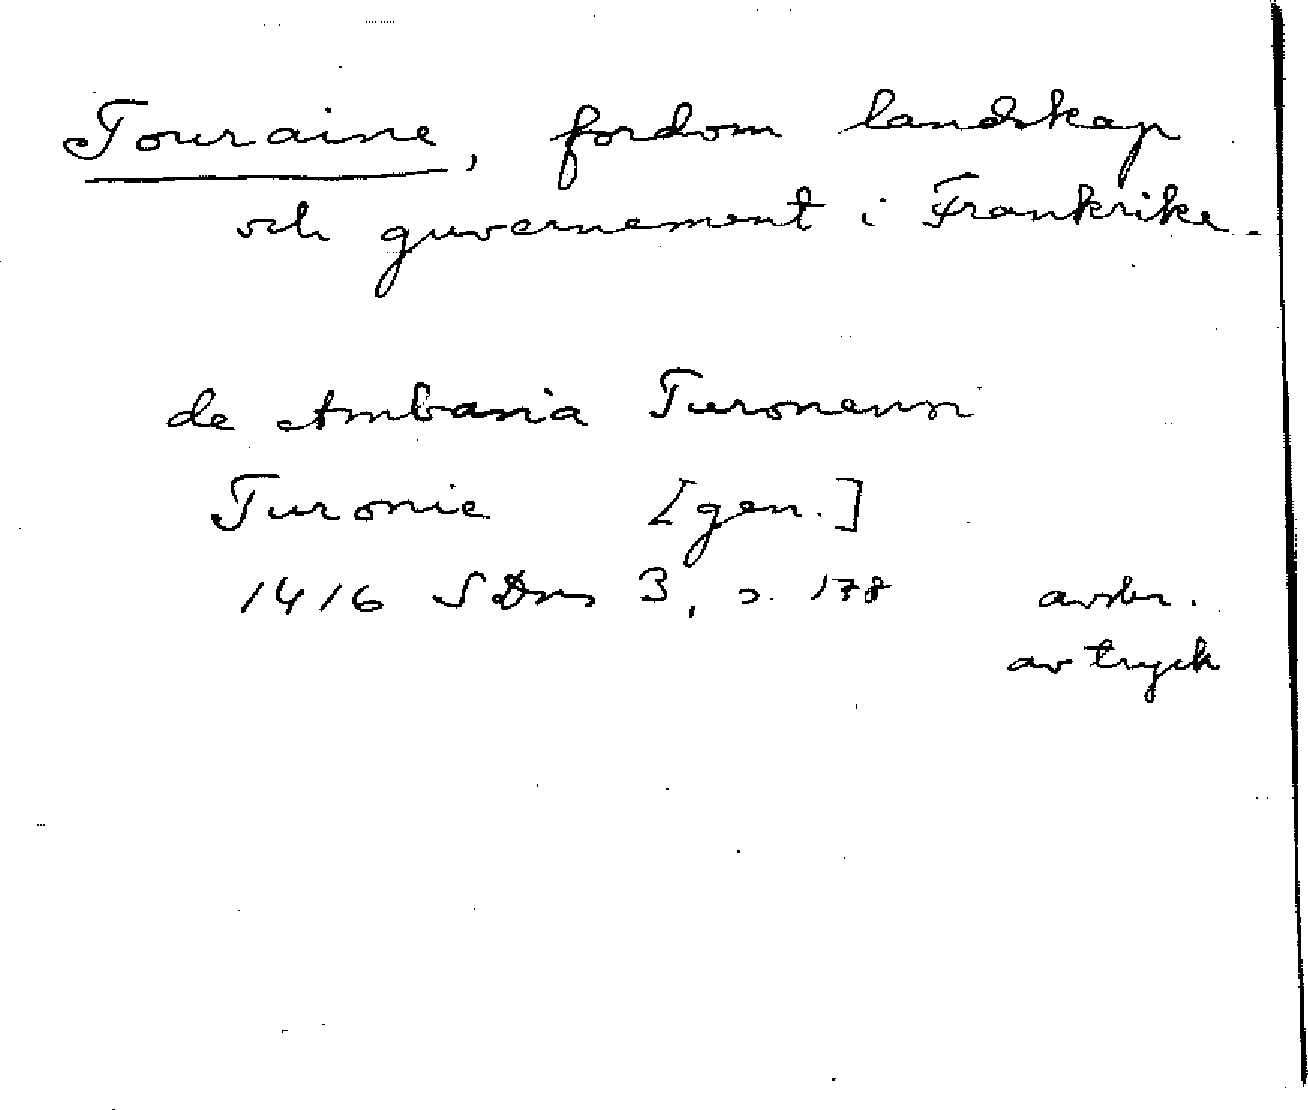 Touraine, fordom landskap
och guvernement i Frankrike.
de Ambasia Turonensi
Turonie [gen.]
1416 SDns 3, s. 178 avskr.
av tryck